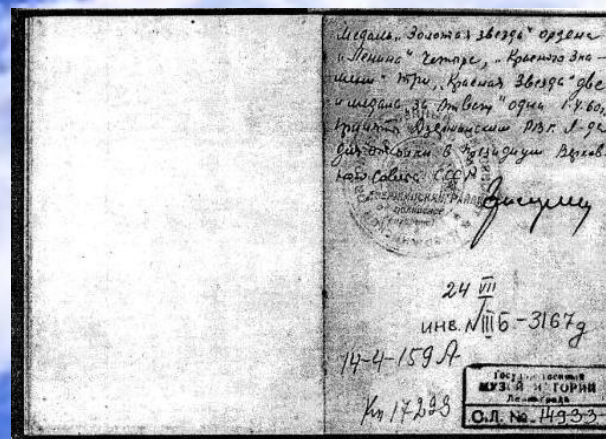 Медаль „Золотая звезда" ордена
„Ленина" четыре, „Красного Зна-
мени" три, „Красная Звезда" две
и медаль за одна 1.4.60г.
Дзержинским РВК Л-да
для отсылки в Президиум Верхов-
ного Совета СССР
24 VII
инв. № III Б-3167д
14-4-159 А
Кп 17293
Государственный
МУЗЕЙ ИСТОРИИ
Ленинграда
О.Л. № 14933